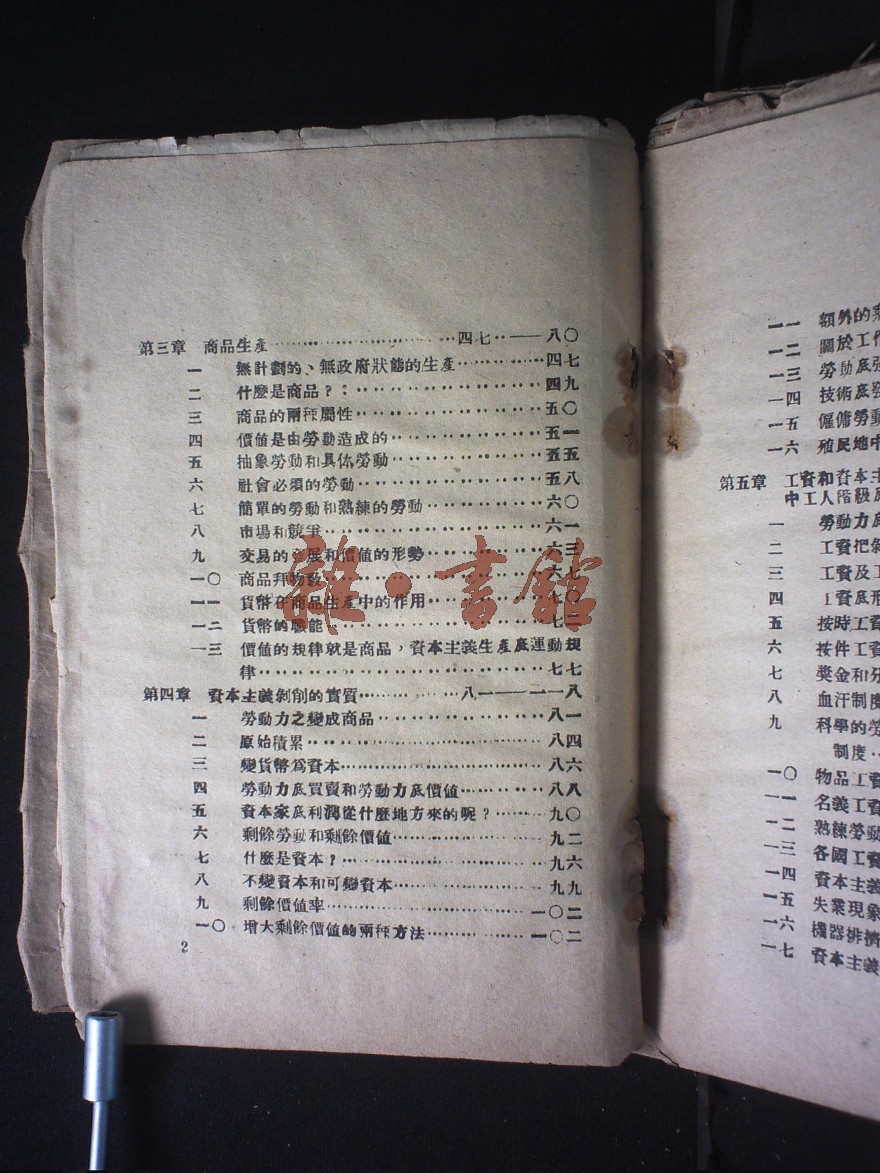 第三章 商品生產……………………四七……八〇
一 無計劃的、無政府狀態的生產……………四七
二 什麼是商品?:……………………四九
三 商品的兩種屬性……………………五〇
四 價値是由勞動造成的……………………五一
五 抽象勞動和具体勞動……………………五五
六 社會必須的勞動……………………五八
七 簡單的勞動和熟練的勞動……………………六〇
八 市場和競爭……………………六一
九 交易的發展和價値的形勢……………………六三
一〇 商品拜物敎……………………六七
一一 貨幣在商品生產中的作用……………………七
一二 貨幣的職能……………………七二
一三 價値的規律就是商品,資本主義生產底運動規
律……………………七七
第四章 資本主義剝削的實質……………………八一——一一八
一 勞動力之變成商品……………………八一
二 原始積累……………………八四
三 變貨幣爲資本……………………八六
四 勞動力底買賣和勞動力底價値……………………八八
五 資本家底利潤從什麼地方來的呢?……………………九〇
六 剩餘勞動和剩餘價値……………………九二
七 什麼是資本?……………………九六
八 不變資本和可變資本……………………九九
九 剩餘價値率……………………一〇二
一〇 增大剩餘價値的兩种方法……………………一〇二
2
雜·書館
一一 額外的剩
一二 關於工作
一三 勞動底強
一四 技術底發
一五 僱傭勞動
一六 殖民地中
第五章 工資和資本主
中工人階級底
一 勞動力底
二 工資把剝
三 工資及工
四 工資底形
五 按時工資
六 按件工資
七 獎金和分
八 血汗制度
九 科學的勞
制度‥
一〇 物品工資
一一 名義工資
一二 熟練勞動
一三 各國工資
一四 資本主義
一五 失業現象
一六 機器排擠
一七 資本主義